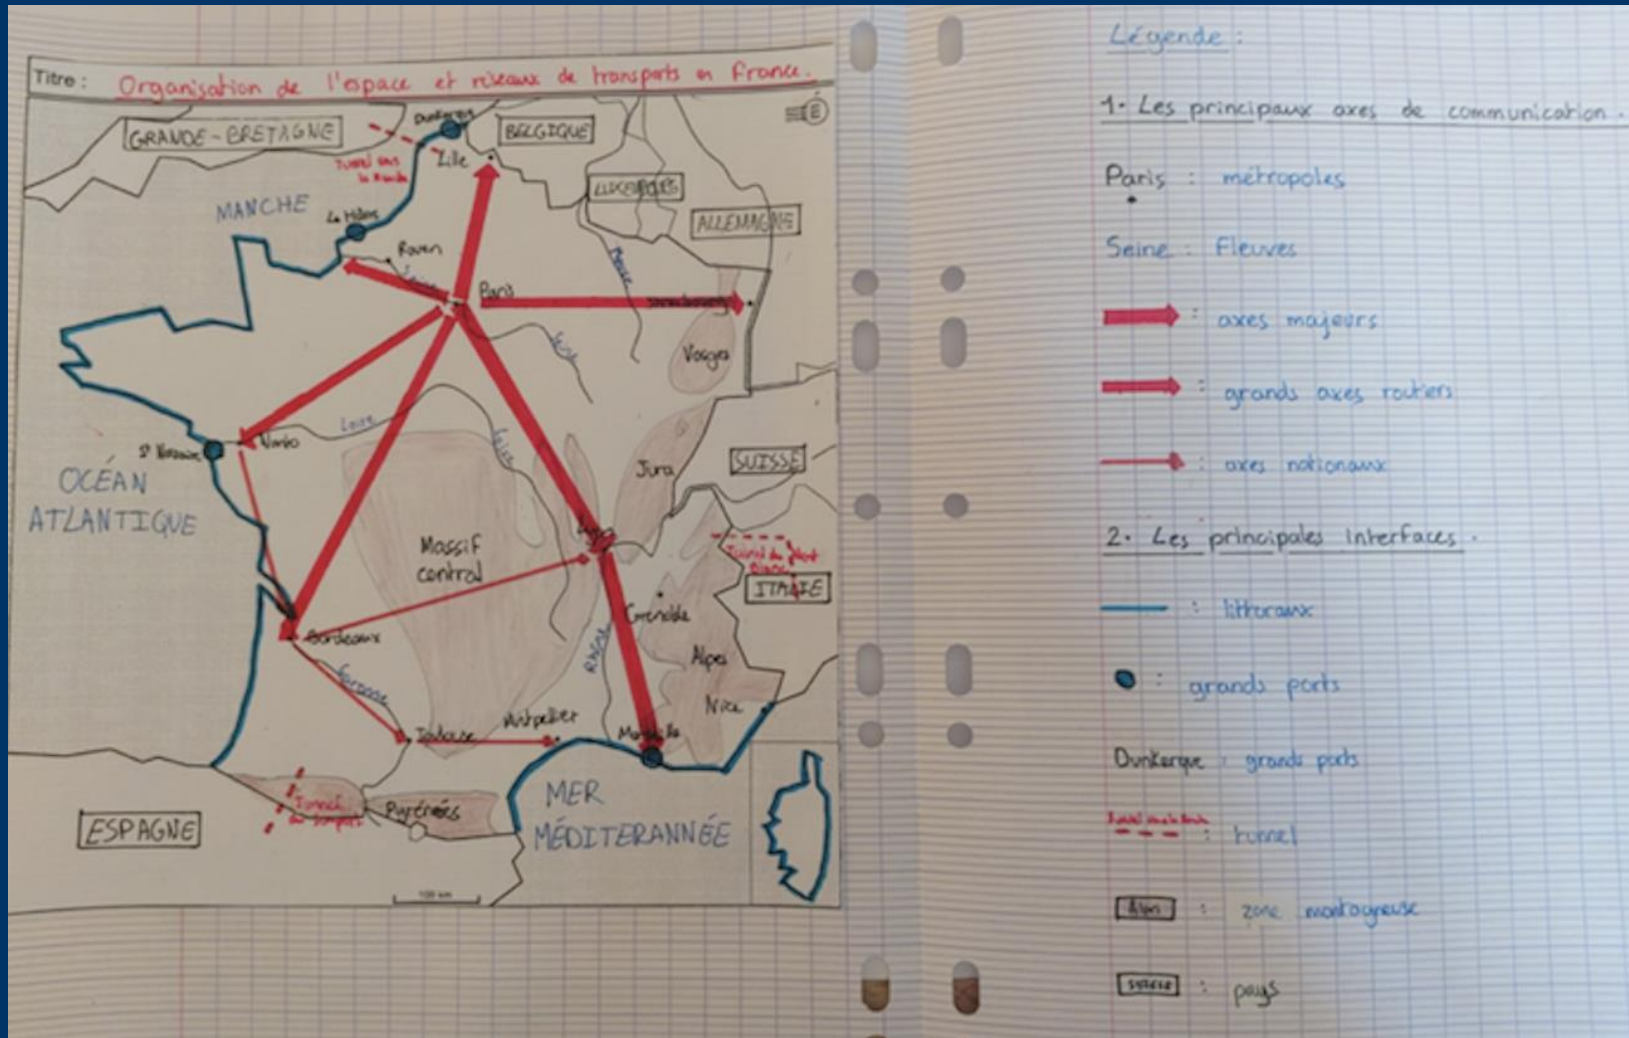 Titre : Organisation de l'espace et réseaux de transports en France.
GRANDE-BRETAGNE
Dunkerque
BELGIQUE
Lille
Tunnel sous
la Manche
LUXEMBOURG
MANCHE
ALLEMAGNE
Le Havre
Rouen
Meuse
Seine
Paris
Strasbourg
Seine
Vosges
Loire
Loire
St Nazaire
Nantes
Jura
SUISSE
OCÉAN
ATLANTIQUE
Lyon
Massif
central
Tunnel du Mont
Blanc
ITALIE
Grenoble
Bordeaux
Rhône
Alpes
Garonne
Nice
Montpellier
Toulouse
Marseille
Tunnel
Pyrénées
MER
MÉDITERANNÉE
ESPAGNE
100 km
Légende :
1. Les principaux axes de communication.
Paris : métropoles
Seine : Fleuves
: axes majeurs
: grands axes routiers
: axes nationaux
2. Les principales interfaces.
: littoraux
: grands ports
Dunkerque : grands ports
Tunnel sous la Manche
: tunnel
Alpes : zone montagneuse
SUISSE : pays